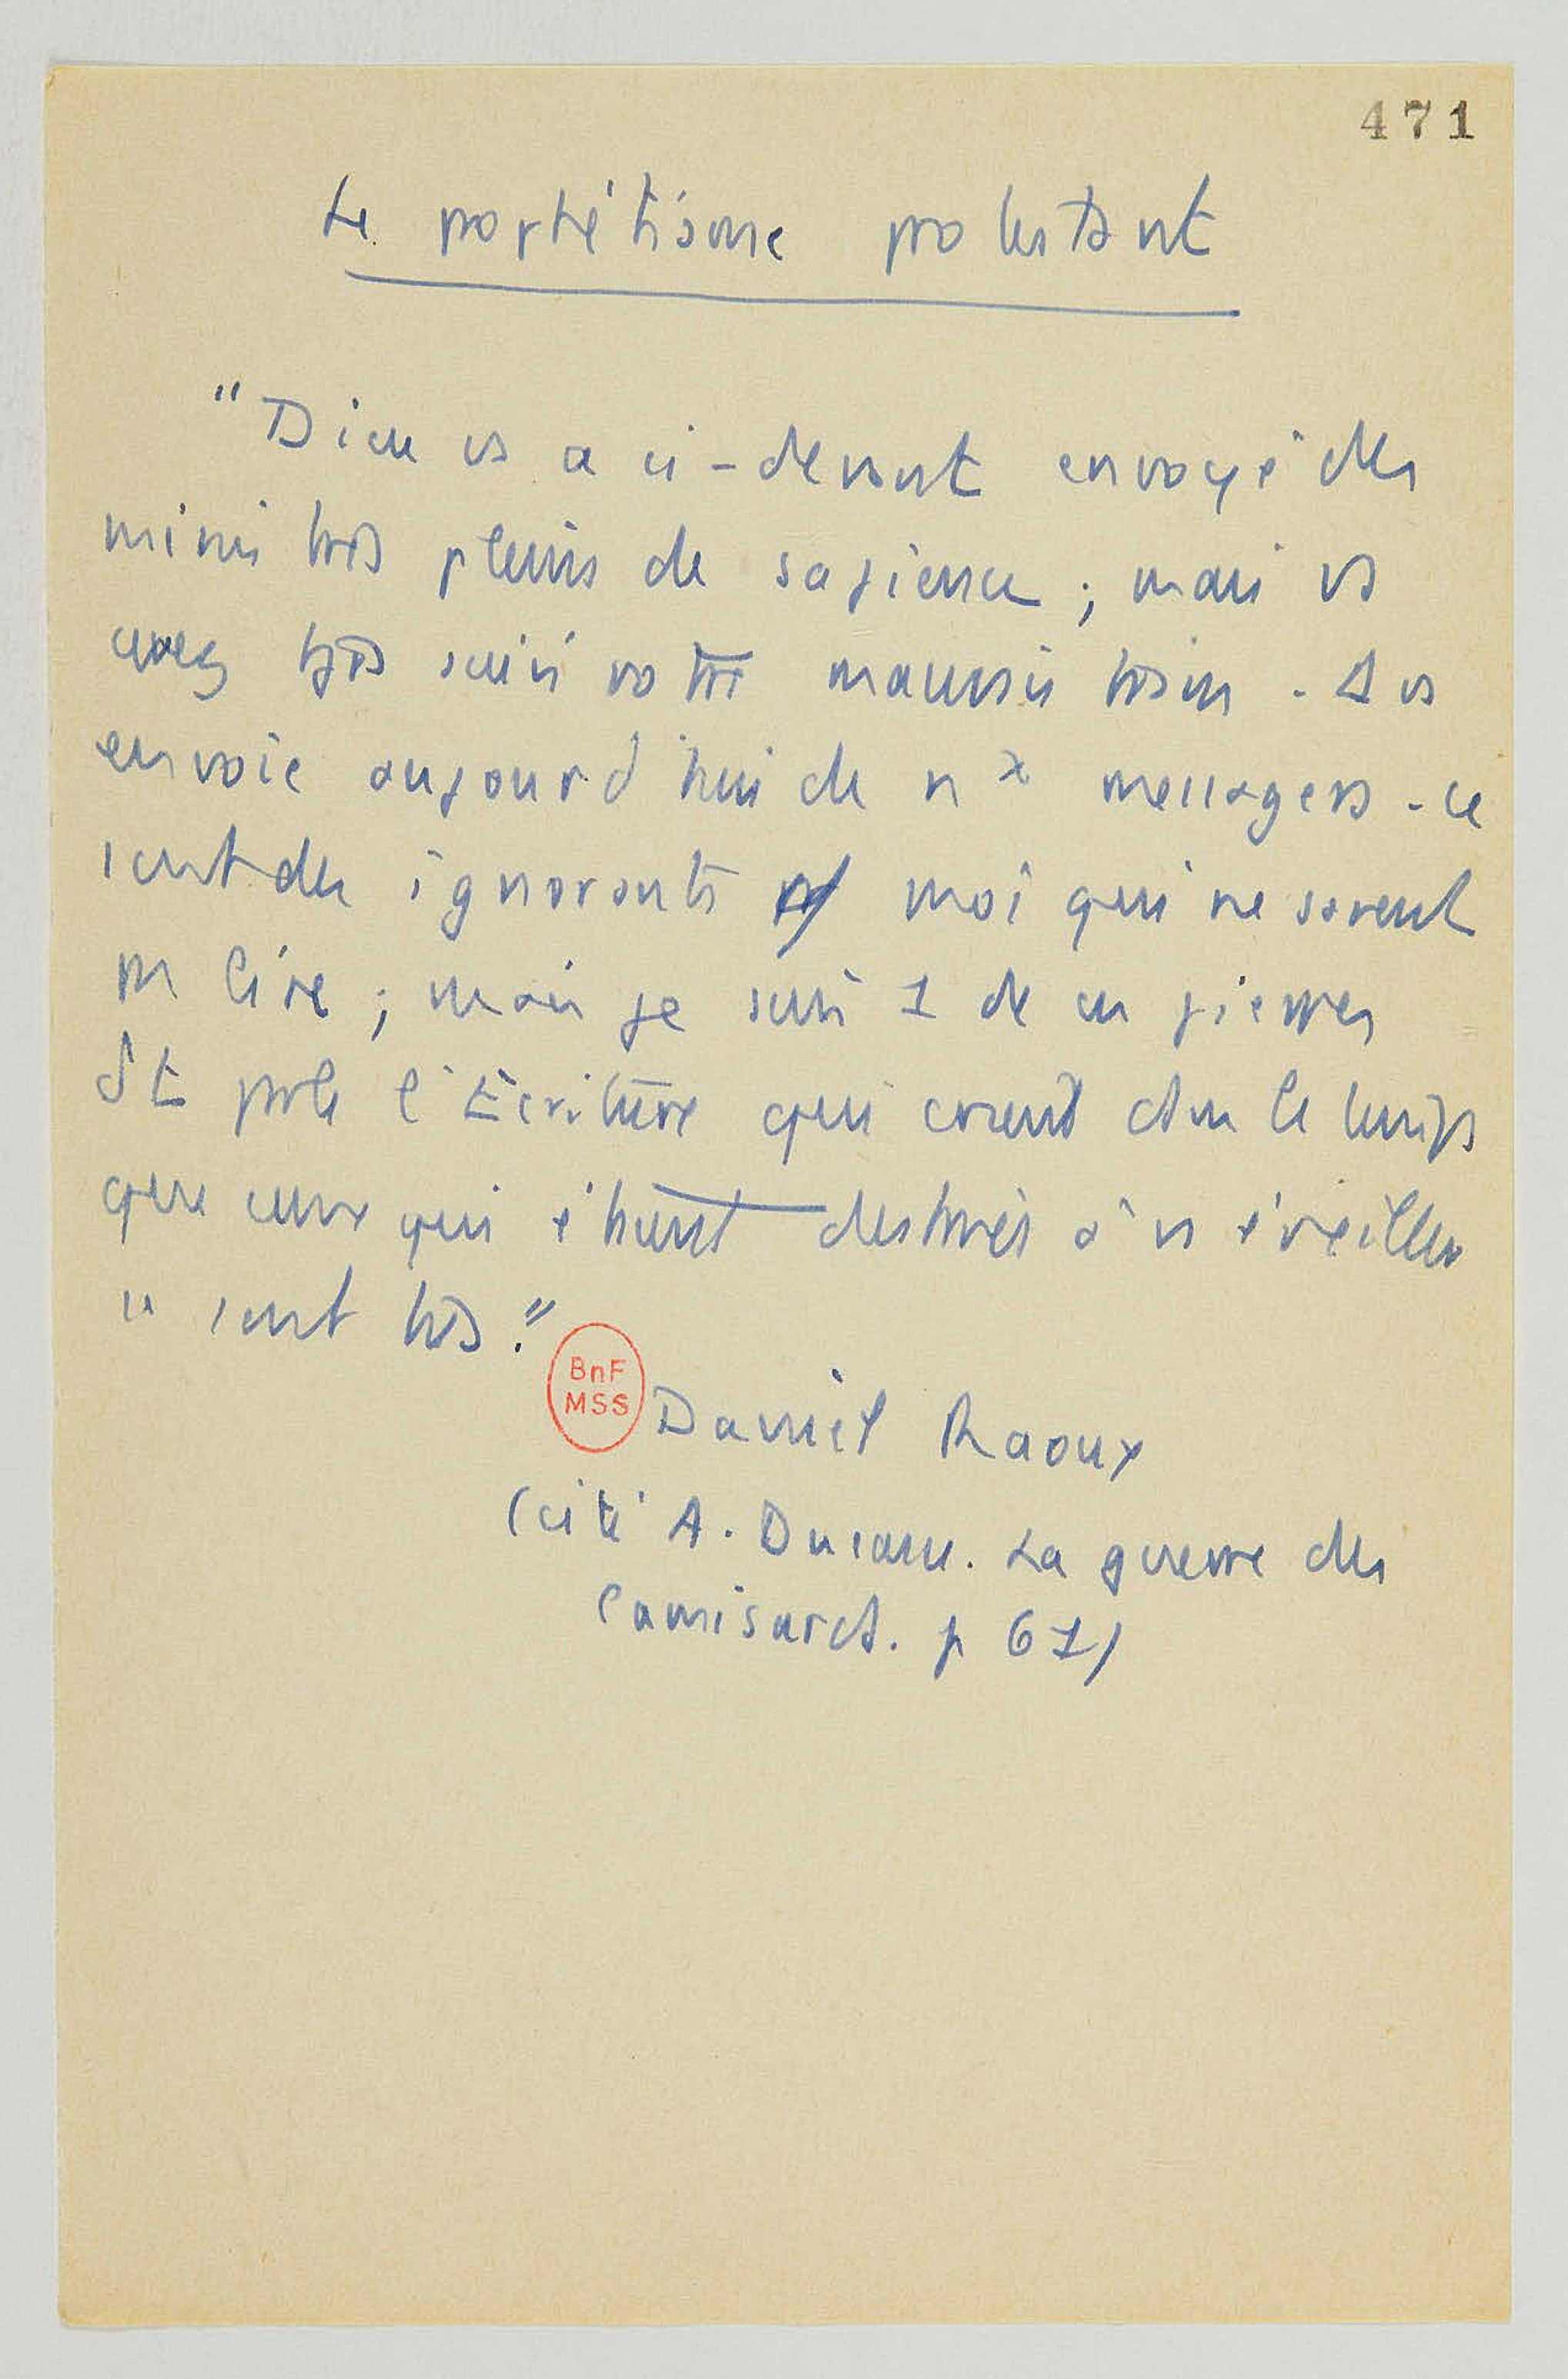 471
Le prophétisme protestant
"Dieu vs a ci-devant envoyé des
ministres pleins de sapience ; mais vs
avez tjrs suivi votre mauvais train. Il vs
envoie aujourd'hui de nx messagers - ce
sont des ignorants cô moi qui ne savent
pas lire ; mais je suis 1 de ces pierres
dt parle l'Écriture qui crient dans le temps
que ceux qui étaient destinés à vs éveiller
se sont tus."
BnF
MSS
Daniel Raoux
(cité A. Ducasse. La guerre des
Camisards. p 61)